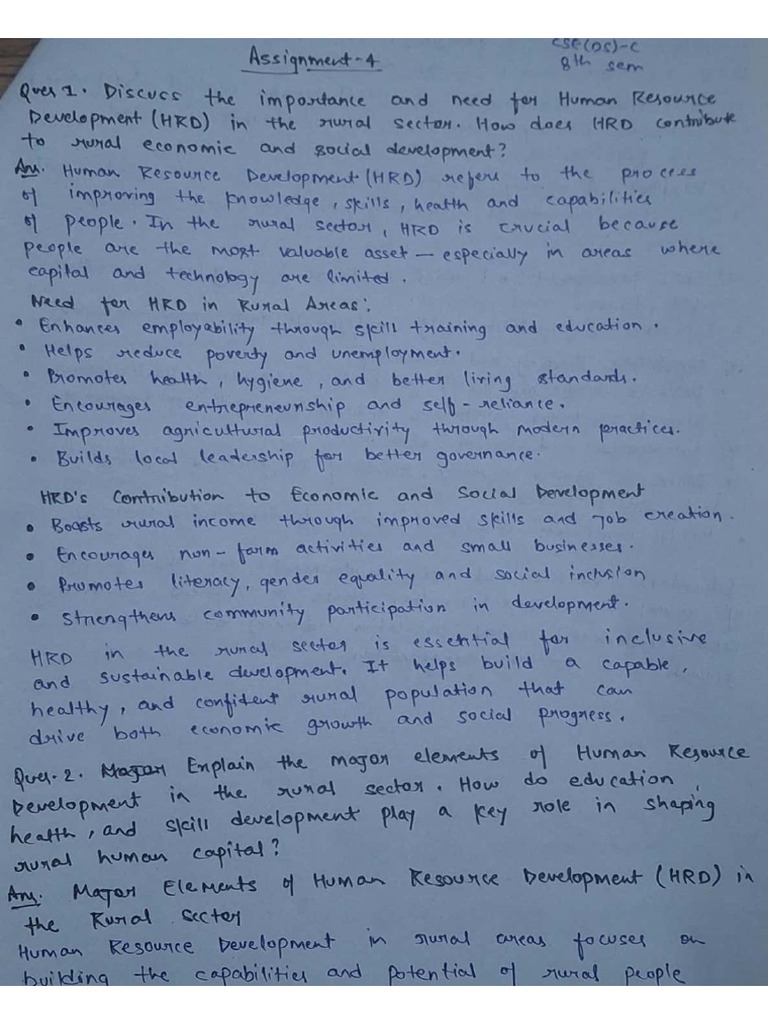 Assignment-4
CSE(DS)-C
8th sem
Ques 1. Discuss the importance and need for Human Resource
Development (HRD) in the rural sector. How does HRD contribute
to rural economic and social development?
Ans. Human Resource Development (HRD) refers to the process
of improving the knowledge, skills, health and capabilities
of people. In the rural sector, HRD is crucial because
people are the most valuable asset — especially in areas where
capital and technology are limited.
Need for HRD in Rural Areas:
• Enhances employability through skill training and education.
• Helps reduce poverty and unemployment.
• Promotes health, hygiene, and better living standards.
• Encourages entrepreneurship and self-reliance.
• Improves agricultural productivity through modern practices.
• Builds local leadership for better governance.
HRD's Contribution to Economic and Social Development
• Boosts rural income through improved skills and job creation.
• Encourages non-farm activities and small businesses.
• Promotes literacy, gender equality and social inclusion
• Strengthens community participation in development.
HRD in the rural sector is essential for inclusive
and sustainable development. It helps build a capable,
healthy, and confident rural population that can
drive both economic growth and social progress.
Ques. 2. Major Explain the major elements of Human Resource
Development in the rural sector. How do education,
health, and skill development play a key role in shaping
rural human capital?
Ans. Major Elements of Human Resource Development (HRD) in
the Rural Sector
Human Resource Development in rural areas focuses on
building the capabilities and potential of rural people